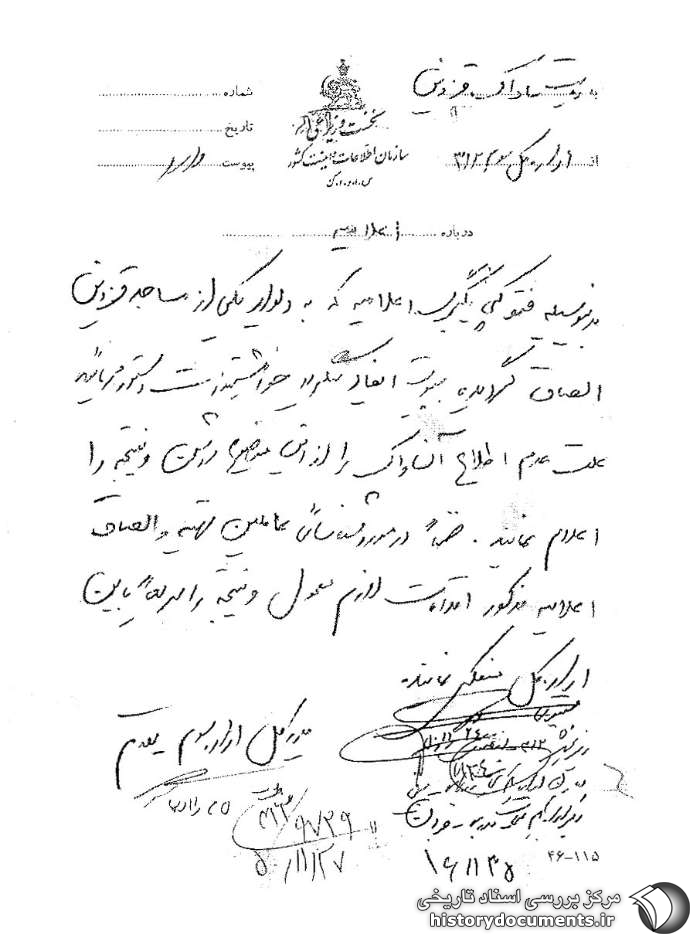 به ریاست ساواک قزوین
از اداره کل سوم ۳۱۲
نخست وزیری
سازمان اطلاعات و امنیت کشور
س.ا.و.ا.ک
شماره
تاریخ
پیوست دارد
درباره اعلامیه
بدینوسیله فتوکپی اعلامیه که به دیوار یکی از مساجد قزوین
الصاق گردیده بپیوست ایفاد میگردد خواهشمند است دستور فرمائید
علت عدم اطلاع آن ساواک را از این موضوع روشن و نتیجه را
اعلام نمایند. ضمناً در مورد شناسائی عاملین تهیه و الصاق
اعلامیه مذکور اقدامات لازم معمول و نتیجه را سریعاً باین
اداره کل منعکس نمایند.
مدیر کل اداره سوم مقدم
۳۱۲
۹۷۲۹
۱۱/۲۷
۴۶-۱۱۵
مرکز بررسی اسناد تاریخی
historydocuments.ir